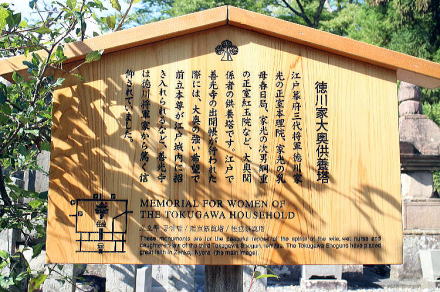 徳川家大奥供養塔
江戸幕府三代将軍徳川家
光の正室本理院、家光の乳
母春日局、家光の次男綱重
の正室紅玉院など、大奥関
係者の供養塔です。江戸で
善光寺の出開帳が行われた
際には、大奥の強い希望で
前立本尊が江戸城内に招
き入れられるなど、善光寺
は徳川将軍家から篤く信
仰されていました。
MEMORIAL FOR WOMEN OF
THE TOKUGAWA HOUSEHOLD
These monuments are for the peaceful repose of the spirits of the wife, wet nurse and
daughter-in-law of the third Tokugawa Shogun, Iemitsu. The Tokugawa Shoguns have placed
great faith in Zenkoji, Kyoto (the main image).